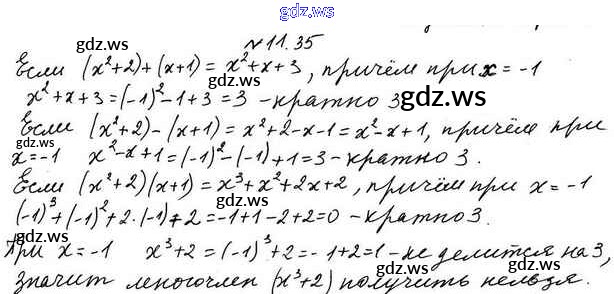 gdz.ws
№11.35
gdz.ws gdz.ws
Если (x²+2)+(x+1)= x²+x+3, причём при x=-1
x²+x+3=(-1)²-1+3=3 - кратно 3
gdz.ws
Если (x²+2)-(x+1)=x²+2-x-1=x²-x+1, причём при
x=-1 x²-x+1=(-1)²-(-1)+1=3 - кратно 3.
gdz.ws gdz.ws
Если (x²+2)(x+1)=x³+x²+2x+2, причём при x=-1
(-1)³+(-1)²+2·(-1)+2=-1+1-2+2=0 - кратно 3.
gdz.ws
При x=-1 x³+2=(-1)³+2=-1+2=1 - не делится на 3,
значит многочлен (x³+2) получить нельзя.
gdz.ws gdz.ws